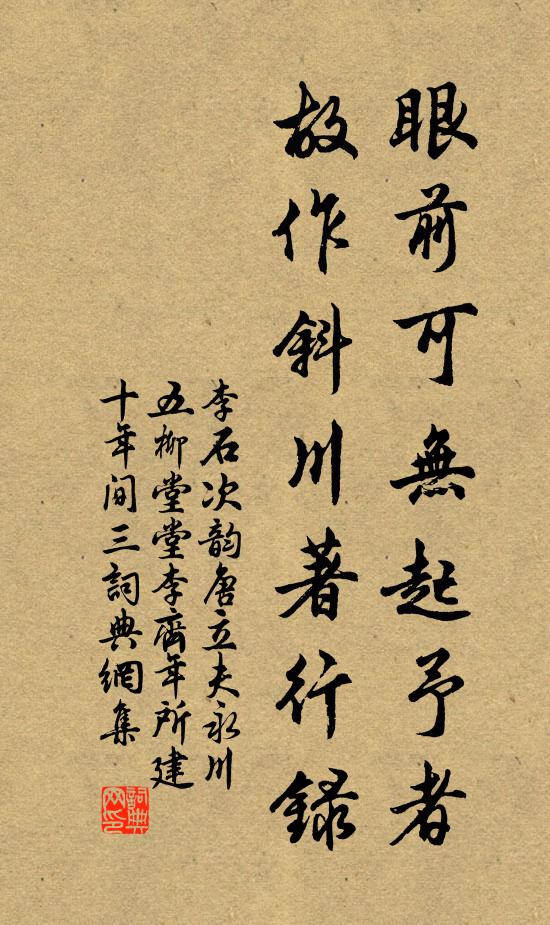 眼前可無起予者
故作斜川著行録
李石次韵唐立夫永川
五柳堂堂李齊年所建
十年间三詞典網集
詞典網印